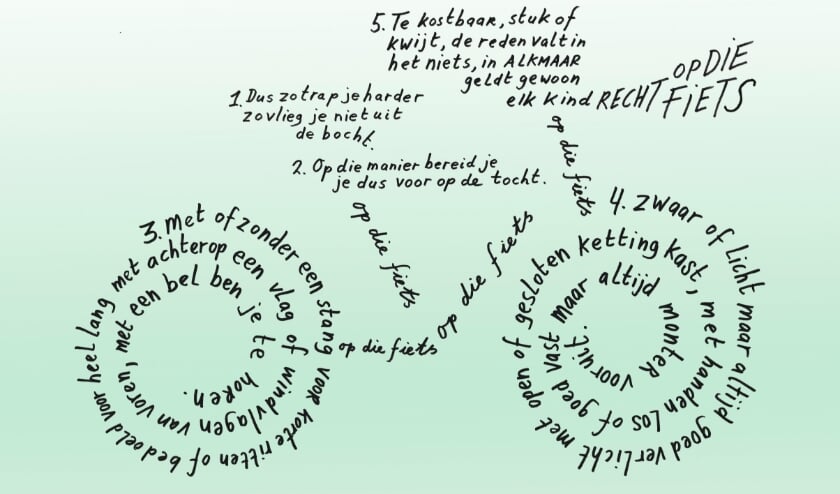 1. Dus zo trap je harder
zo vlieg je niet uit
de bocht.
2. Op die manier bereid je
je dus voor op de tocht.
3. Met of zonder een stang voor korte ritten of bedoeld voor heel lang met achterop een vlag of windvlagen van voren, met een bel ben je te horen.
op die fiets
op die fiets
op die fiets
4. Zwaar of licht maar altijd goed verlicht met open of gesloten ketting kast, met handen los of goed vast maar altijd monter vooruit.
op die fiets
5. Te kostbaar, stuk of
kwijt, de reden valt in
het niets, in ALKMAAR
geldt gewoon
elk kind RECHT
OP DIE
FIETS